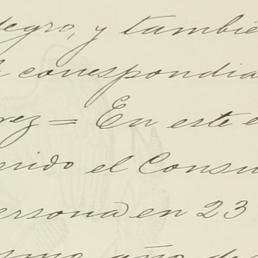 negro, y tambié
correspondia
rez = En este
nido el Consu
ersona en 23
smo año de